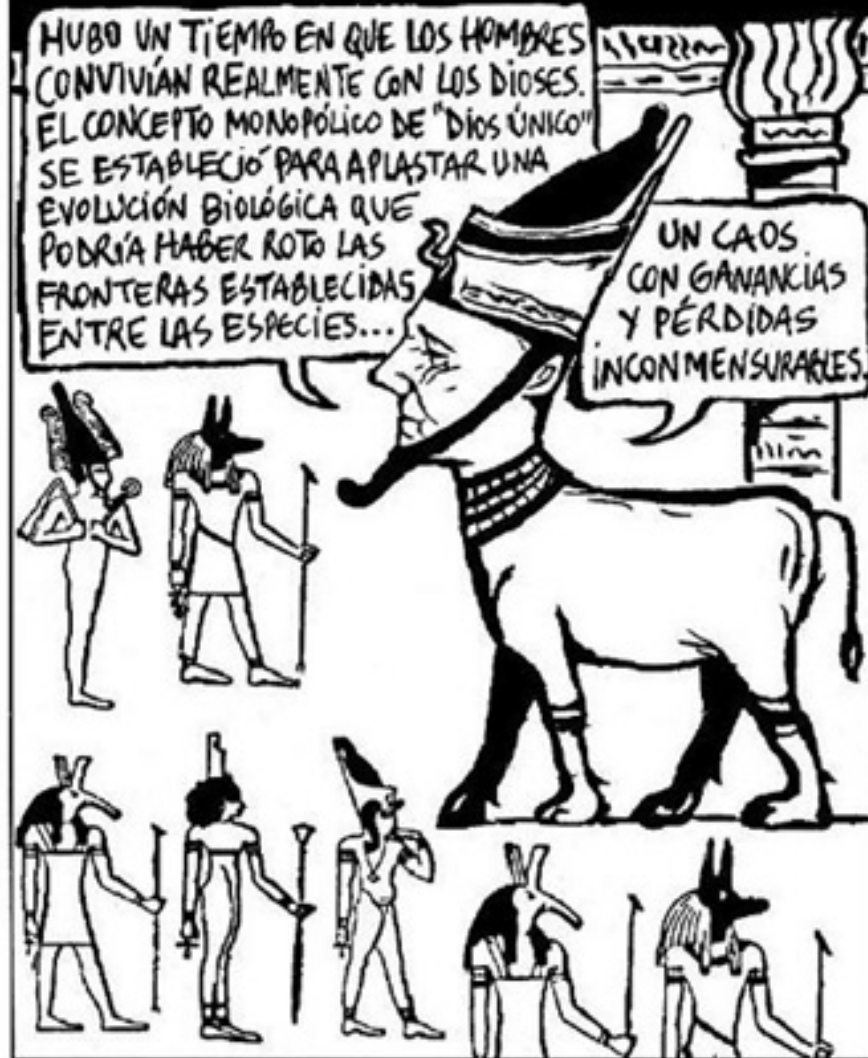 HUBO UN TIEMPO EN QUE LOS HOMBRES
CONVIVIÁN REALMENTE CON LOS DIOSES.
EL CONCEPTO MONOPÓLICO DE "DIOS ÚNICO"
SE ESTABLECIÓ PARA APLASTAR UNA
EVOLUCIÓN BIOLÓGICA QUE
PODRÍA HABER ROTO LAS
FRONTERAS ESTABLECIDAS
ENTRE LAS ESPECIES...
UN CAOS
CON GANANCIAS
Y PÉRDIDAS
INCONMENSURABLES.